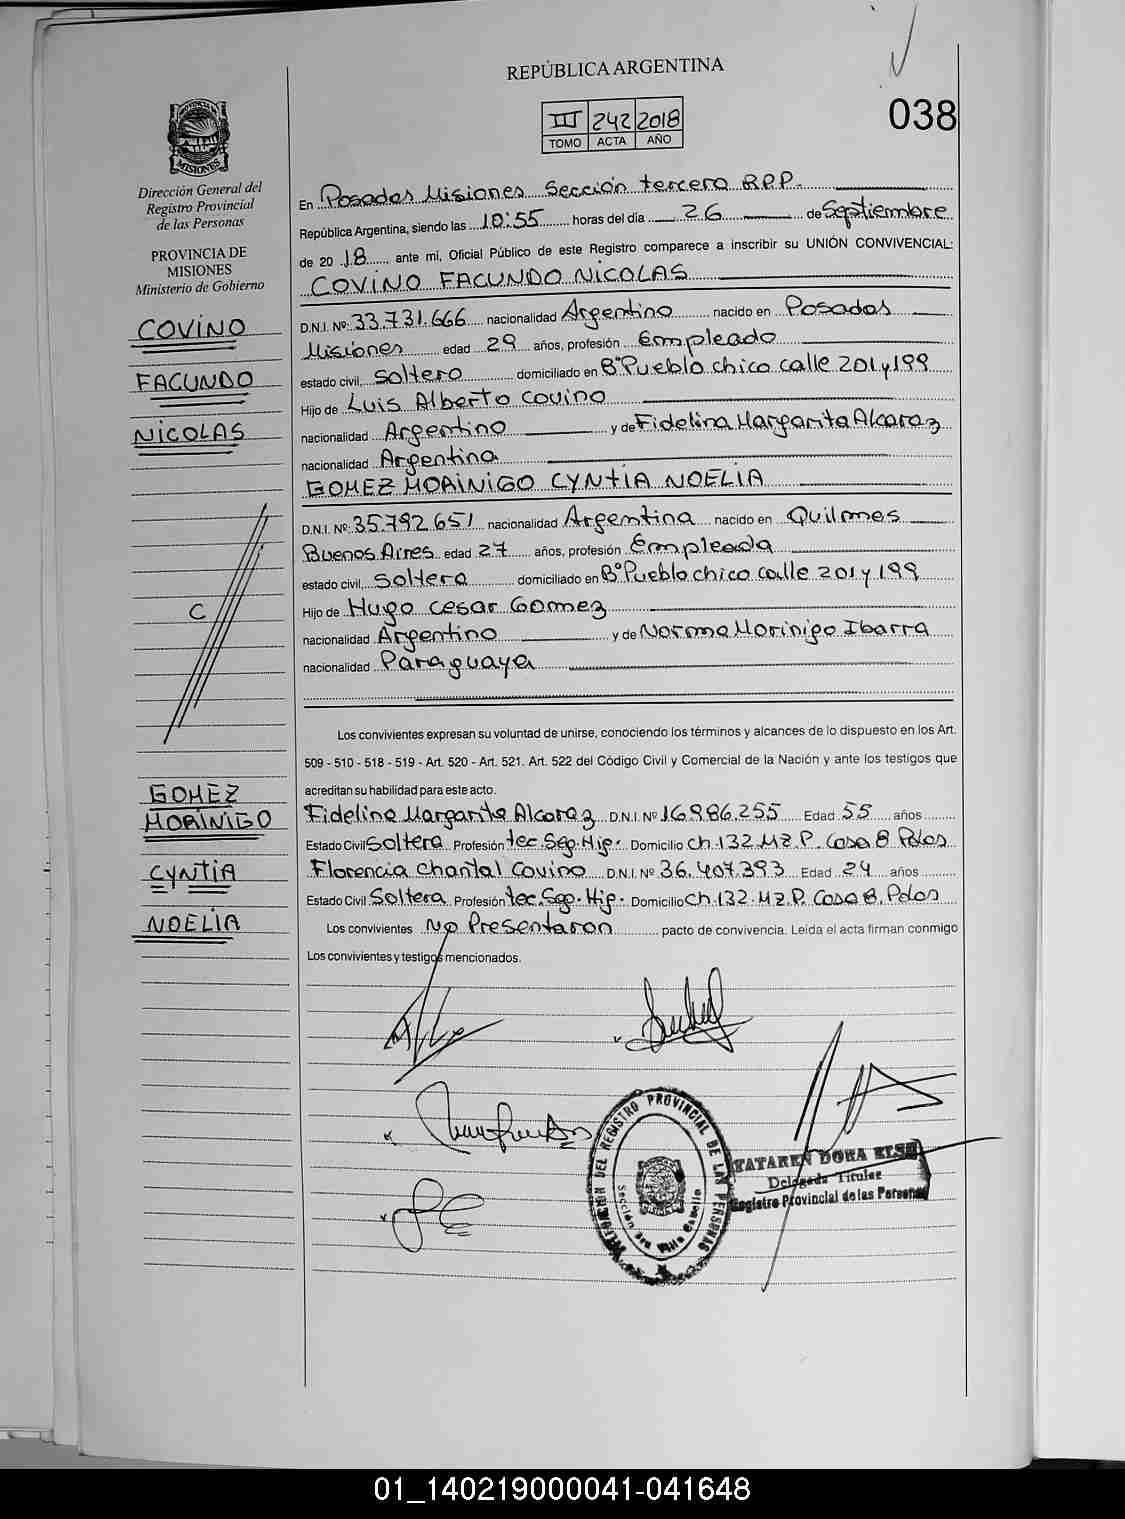 REPÚBLICA ARGENTINA
038
III 242 2018
TOMO ACTA AÑO
PROVINCIA DE
MISIONES
Dirección General del
Registro Provincial
de las Personas
PROVINCIA DE
MISIONES
Ministerio de Gobierno
COVINO
FACUNDO
NICOLAS
C
GOMEZ
MORINIGO
CYNTIA
NOELIA
En Posadas Misiones Sección tercera R.P.P.
República Argentina, siendo las 10:55 horas del día 26 de Septiembre
de 20 18 ante mi, Oficial Público de este Registro comparece a inscribir su UNIÓN CONVIVENCIAL:
COVINO FACUNDO NICOLAS
D.N.I. Nº 33.731.666 nacionalidad Argentino nacido en Posadas
Misiones edad 29 años, profesión Empleado
estado civil, Soltero domiciliado en Bº Pueblo chico calle 201 y 199
Hijo de Luis Alberto Covino
nacionalidad Argentino y de Fidelina Margarita Alcaraz
nacionalidad Argentina
GOMEZ MORINIGO CYNTIA NOELIA
D.N.I. Nº 35.792.651 nacionalidad Argentina nacido en Quilmes
Buenos Aires edad 27 años, profesión Empleada
estado civil, Soltera domiciliado en Bº Pueblo chico calle 201 y 199
Hijo de Hugo Cesar Gomez
nacionalidad Argentino y de Norma Morinigo Ibarra
nacionalidad Paraguaya
Los convivientes expresan su voluntad de unirse, conociendo los términos y alcances de lo dispuesto en los Art.
509 - 510 - 518 - 519 - Art. 520 - Art. 521. Art. 522 del Código Civil y Comercial de la Nación y ante los testigos que
acreditan su habilidad para este acto.
Fidelina Margarita Alcaraz D.N.I. Nº 16.986.255 Edad 55 años
Estado Civil Soltera Profesión tec. Seg. Hig. Domicilio Ch. 132 MZ. P. Casa 8 Pdas
Florencia Chantal Covino D.N.I. Nº 36.407.393 Edad 24 años
Estado Civil Soltera Profesión tec. Seg. Hig. Domicilio Ch. 132 MZ. P. Casa 8. Pdas
Los convivientes No Presentaron pacto de convivencia. Leida el acta firman conmigo
Los convivientes y testigos mencionados.
DELEGACION DEL REGISTRO PROVINCIAL DE LAS PERSONAS
Sección 3ra Villa Cabello
TATAREN DORA ELSA
Delegada Titular
Registro Provincial de las Personas
01_140219000041-041648